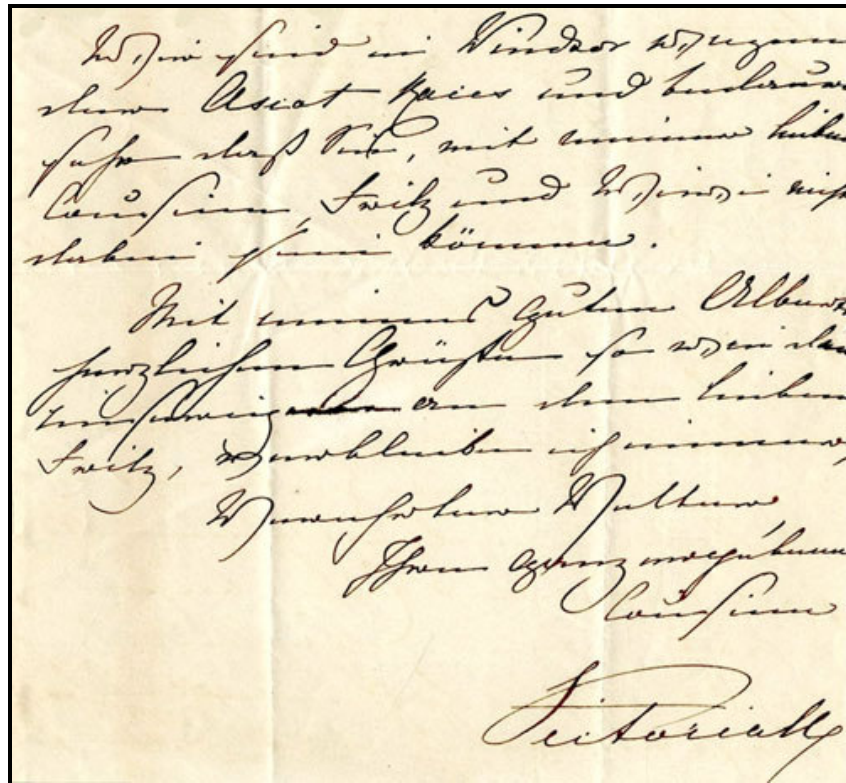 Wir sind in Windsor wegen
der Ascot Races und
sehr daß Sie, mit meiner lieben
Cousine, Fritz und
dabei sein können.
Mit meines guten Alberts
herzlichen Grüßen so wie die
an den lieben
Fritz, verbleibe ich immer,
Verehrter Vetter,
Ihre ganz ergebene
Cousine
Victoria R